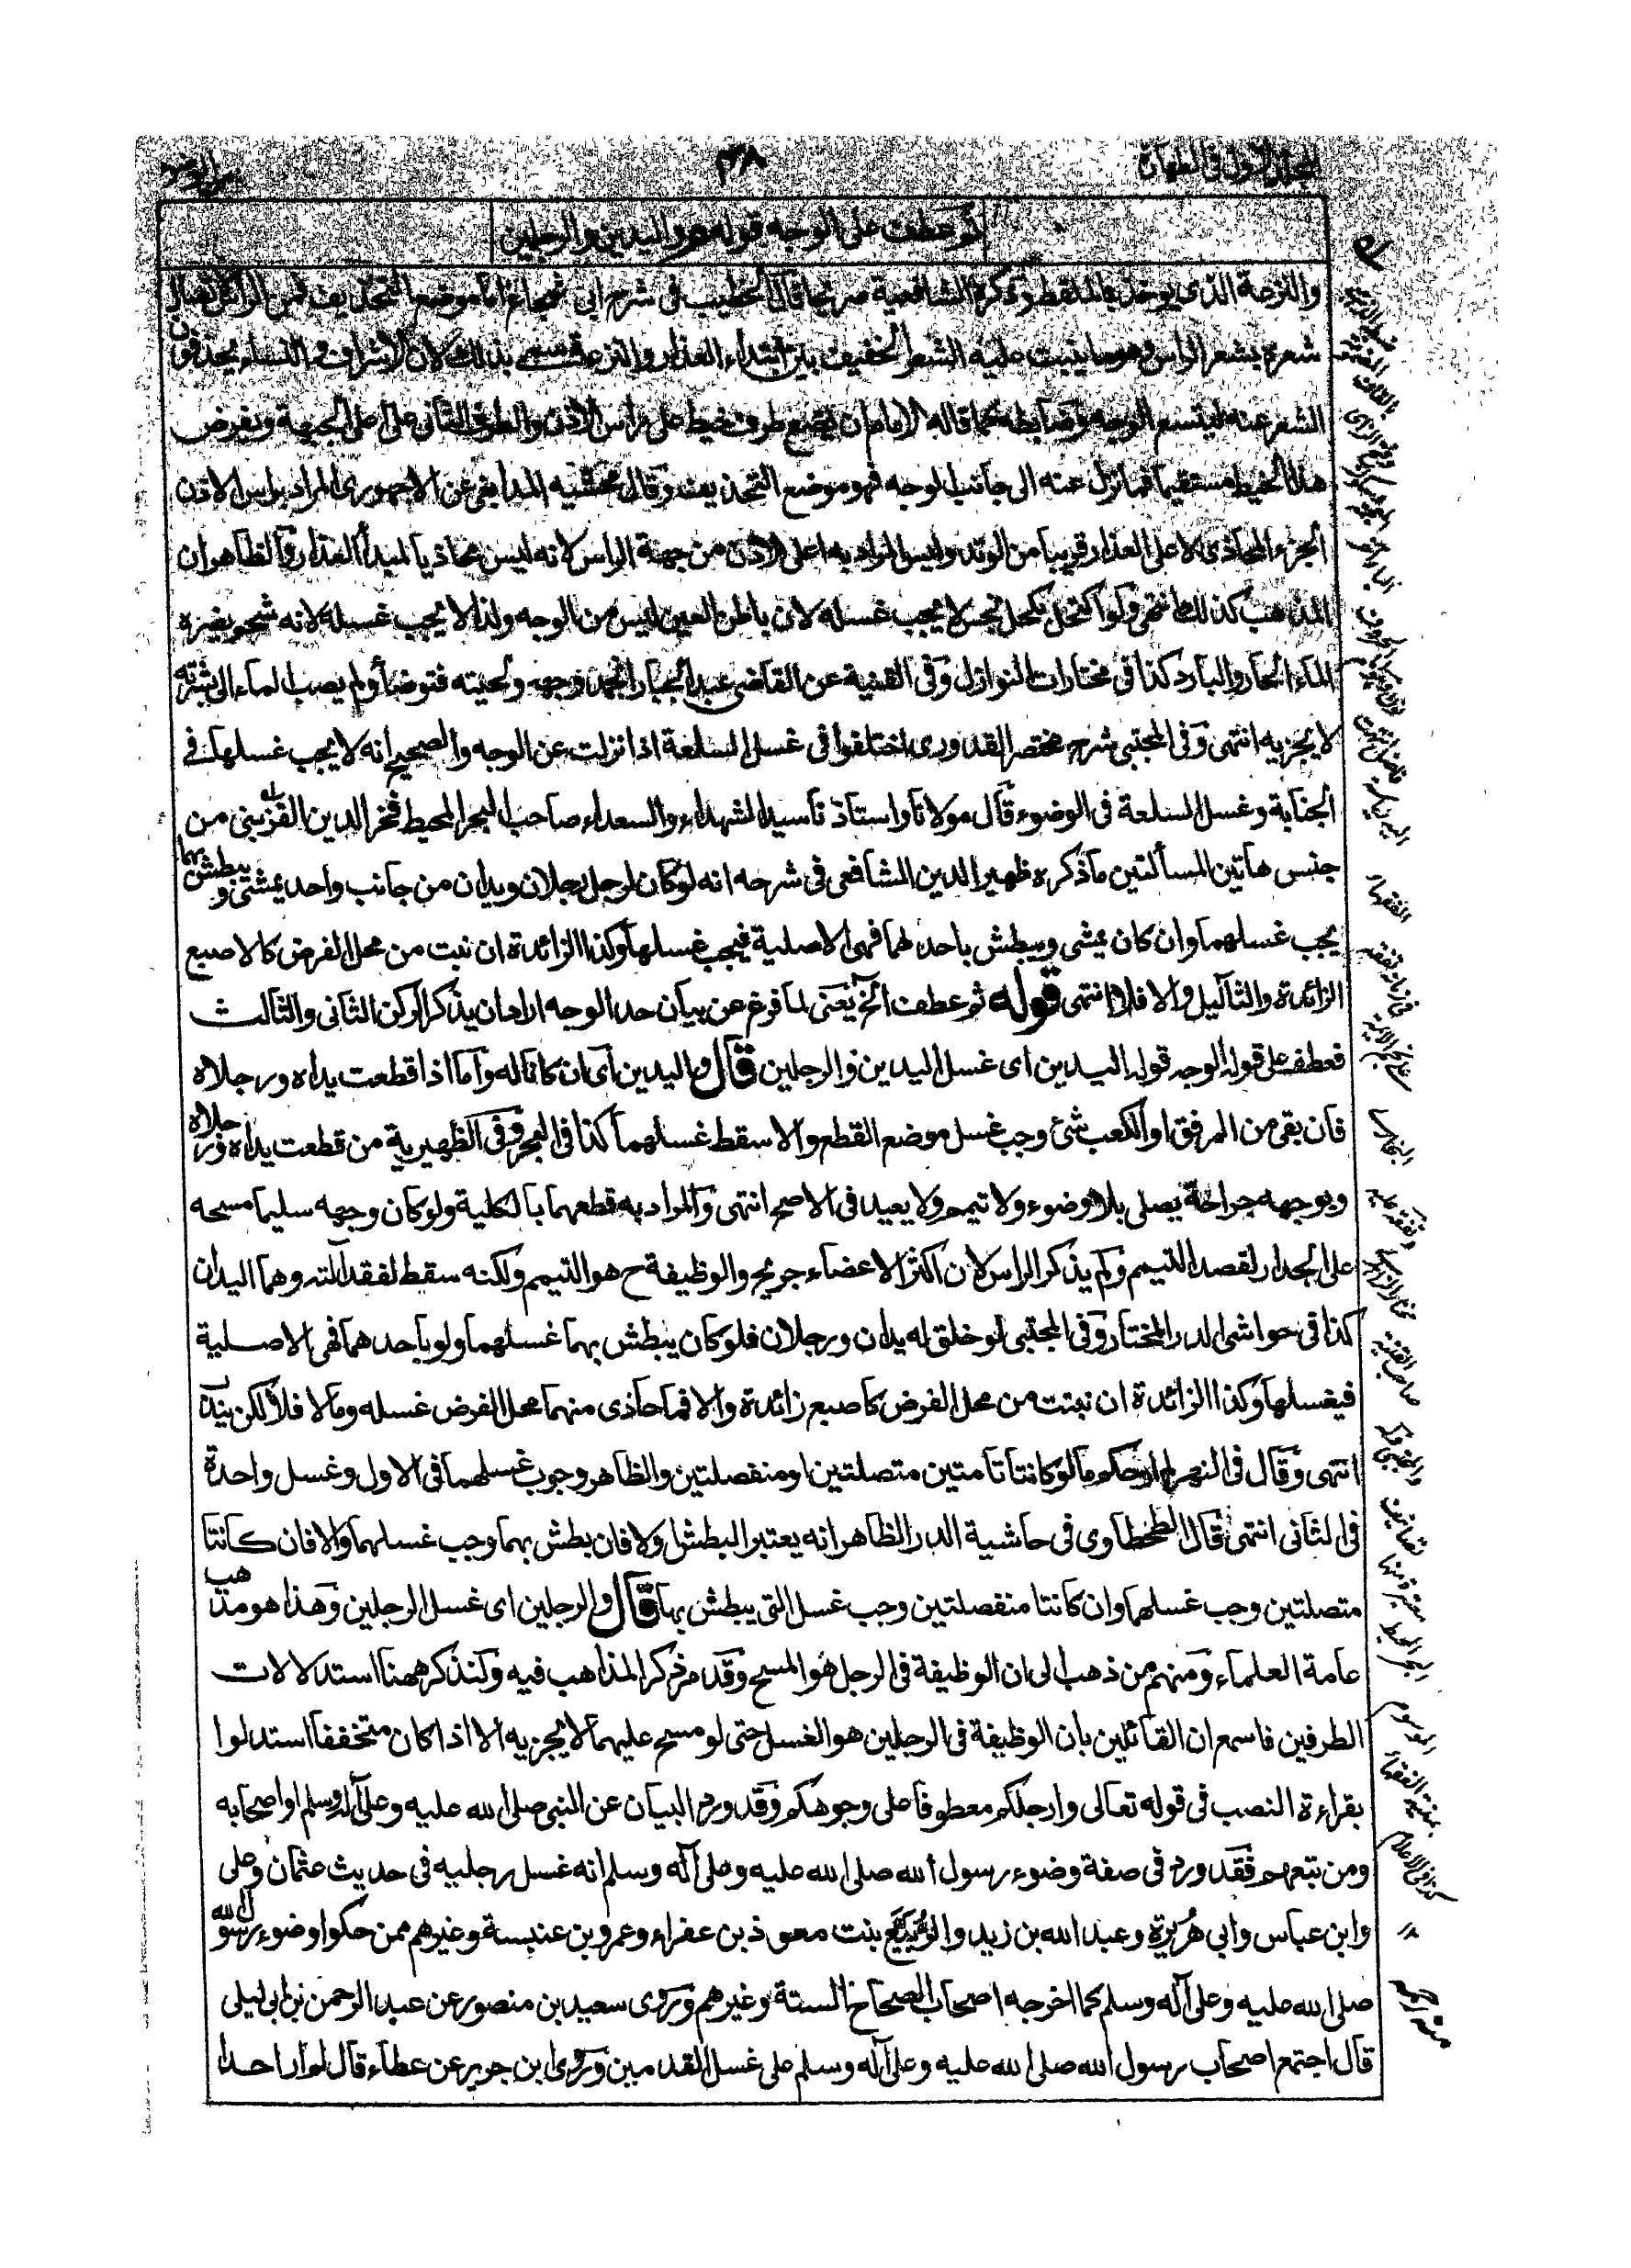 المجلد الاول في الطهارة
٣٨
ثم عطف على الوجه قوله هو واليدين والرجلين
والنزعة الذي يوجد بالملتقط وذكره الشافعية صريحا قال الخطيب في شرح ابي شجاع اما موضع التحذيف فمن الراس لاتصال
شعره بشعر الراس وهو ما ينبت عليه الشعر الخفيف بين ابتداء العذار والنزعة سمي بذلك لان الاشراف والنساء يحذفون
الشعر عنه ليتسع الوجه وضابطه كما قاله الامام ان يضع طرف خيط على راس الاذن والطرف الثاني على اعلى الجبهة ويفرض
هذا الخيط مستقيما فما نزل عنه الى جانب الوجه فهو موضع التحذيف وقال محشيه المدابغي عن الاجهوري المراد براس الاذن
الجزء المحاذي لاعلى العذار قريبا من الوتد وليس المراد به اعلى الاذن من جهة الراس لانه ليس محاذيا لمبدأ العذار والظاهر ان
المذهب كذلك انتهى ولو اكتحل بكحل نجس لا يجب غسله لان باطن العين ليس من الوجه ولذا لا يجب غسله لانه شحم يضره
الماء الحار والبارد كذا في مختارات النوازل وفي القنية عن القاضي عبد الجبار انجمد وجهه ولحيته فتوضأ ولم يصب الماء الى بشرته
لا يجزيه انتهى وفي المجتبى شرح مختصر القدوري اختلفوا في غسل السلعة اذا نزلت عن الوجه والصحيح انه لا يجب غسلها في
الجنابة وغسل السلعة في الوضوء قال مولانا واستاذنا سيد الشهداء والسعداء صاحب البحر المحيط فخر الدين القزبني من
جنس هاتين المسألتين ما ذكره ظهير الدين الشافعي في شرحه انه لو كان لرجل رجلان ويدان من جانب واحد يمشي ويبطش بهما
يجب غسلهما وان كان يمشي ويبطش باحدهما فهي الاصلية فيجب غسلها وكذا الزائدة ان نبت من محل الفرض كالاصبع
الزائدة والثآليل والا فلا انتهى قوله ثم عطف الخ يعني لما فرغ عن بيان حد الوجه اراد ان يذكر الركن الثاني والثالث
فعطف على قوله الوجه قوله اليدين اى غسل اليدين والرجلين قال واليدين اى ان كانا له واما اذا قطعت يداه ورجلاه
فان بقي من المرفق او الكعب شئ وجب غسل موضع القطع والا سقط غسلهما كذا في البحر وفي الظهيرية من قطعت يداه ورجلاه
وبوجهه جراحة يصلي بلا وضوء ولا تيمم ولا يعيد في الاصح انتهى والمراد به قطعهما بالكلية ولو كان وجهه سليما مسحه
على الجدار لقصد التيمم ولم يذكر الراس لان اكثر الاعضاء جريح والوظيفة ح هو التيمم ولكنه سقط لفقد آلته وهما اليدان
كذا في حواشي الدر المختار وفي المجتبى لو خلق له يدان ورجلان فلو كان يبطش بهما غسلهما ولو باحدهما فهي الاصلية
فيغسلها وكذا الزائدة ان نبتت من محل الفرض كاصبع زائدة والا فما حاذى منهما محل الفرض غسله وما لا فلا لكن يندب
انتهى وقال في النهر لم ار حكم ما لو كانتا تامتين متصلتين او منفصلتين والظاهر وجوب غسلهما في الاول وغسل واحدة
في الثاني انتهى قال الطحطاوي في حاشية الدر الظاهر انه يعتبر البطش اولا فان بطش بهما وجب غسلهما والا فان كانتا
متصلتين وجب غسلهما وان كانتا منفصلتين وجب غسل التي يبطش بها قال والرجلين اى غسل الرجلين وهذا هو مذهب
عامة العلماء ومنهم من ذهب الى ان الوظيفة في الرجل هو المسح وقد مر ذكر المذاهب فيه ولنذكر ههنا استدلالات
الطرفين فاسمع ان القائلين بان الوظيفة في الرجلين هو الغسل حتى لو مسح عليهما لا يجزيه الا اذا كان متخففا استدلوا
بقراءة النصب في قوله تعالى وارجلكم معطوفا على وجوهكم وقد ورد البيان عن النبي صلى الله عليه وعلى آله وسلم او اصحابه
ومن تبعهم فقد ورد في صفة وضوء رسول الله صلى الله عليه وعلى آله وسلم انه غسل رجليه في حديث عثمان وعلى
وابن عباس وابي هريرة وعبد الله بن زيد والربيع بنت معوذ بن عفراء وعمرو بن عنبسة وغيرهم ممن حكوا وضوء رسول الله
صلى الله عليه وعلى آله وسلم كما اخرجه اصحاب الصحاح الستة وغيرهم وروى سعيد بن منصور عن عبد الرحمن بن ابي ليلى
قال اجتمع اصحاب رسول الله صلى الله عليه وعلى آله وسلم على غسل القدمين وروى ابن جرير عن عطاء قال لم ار احدا